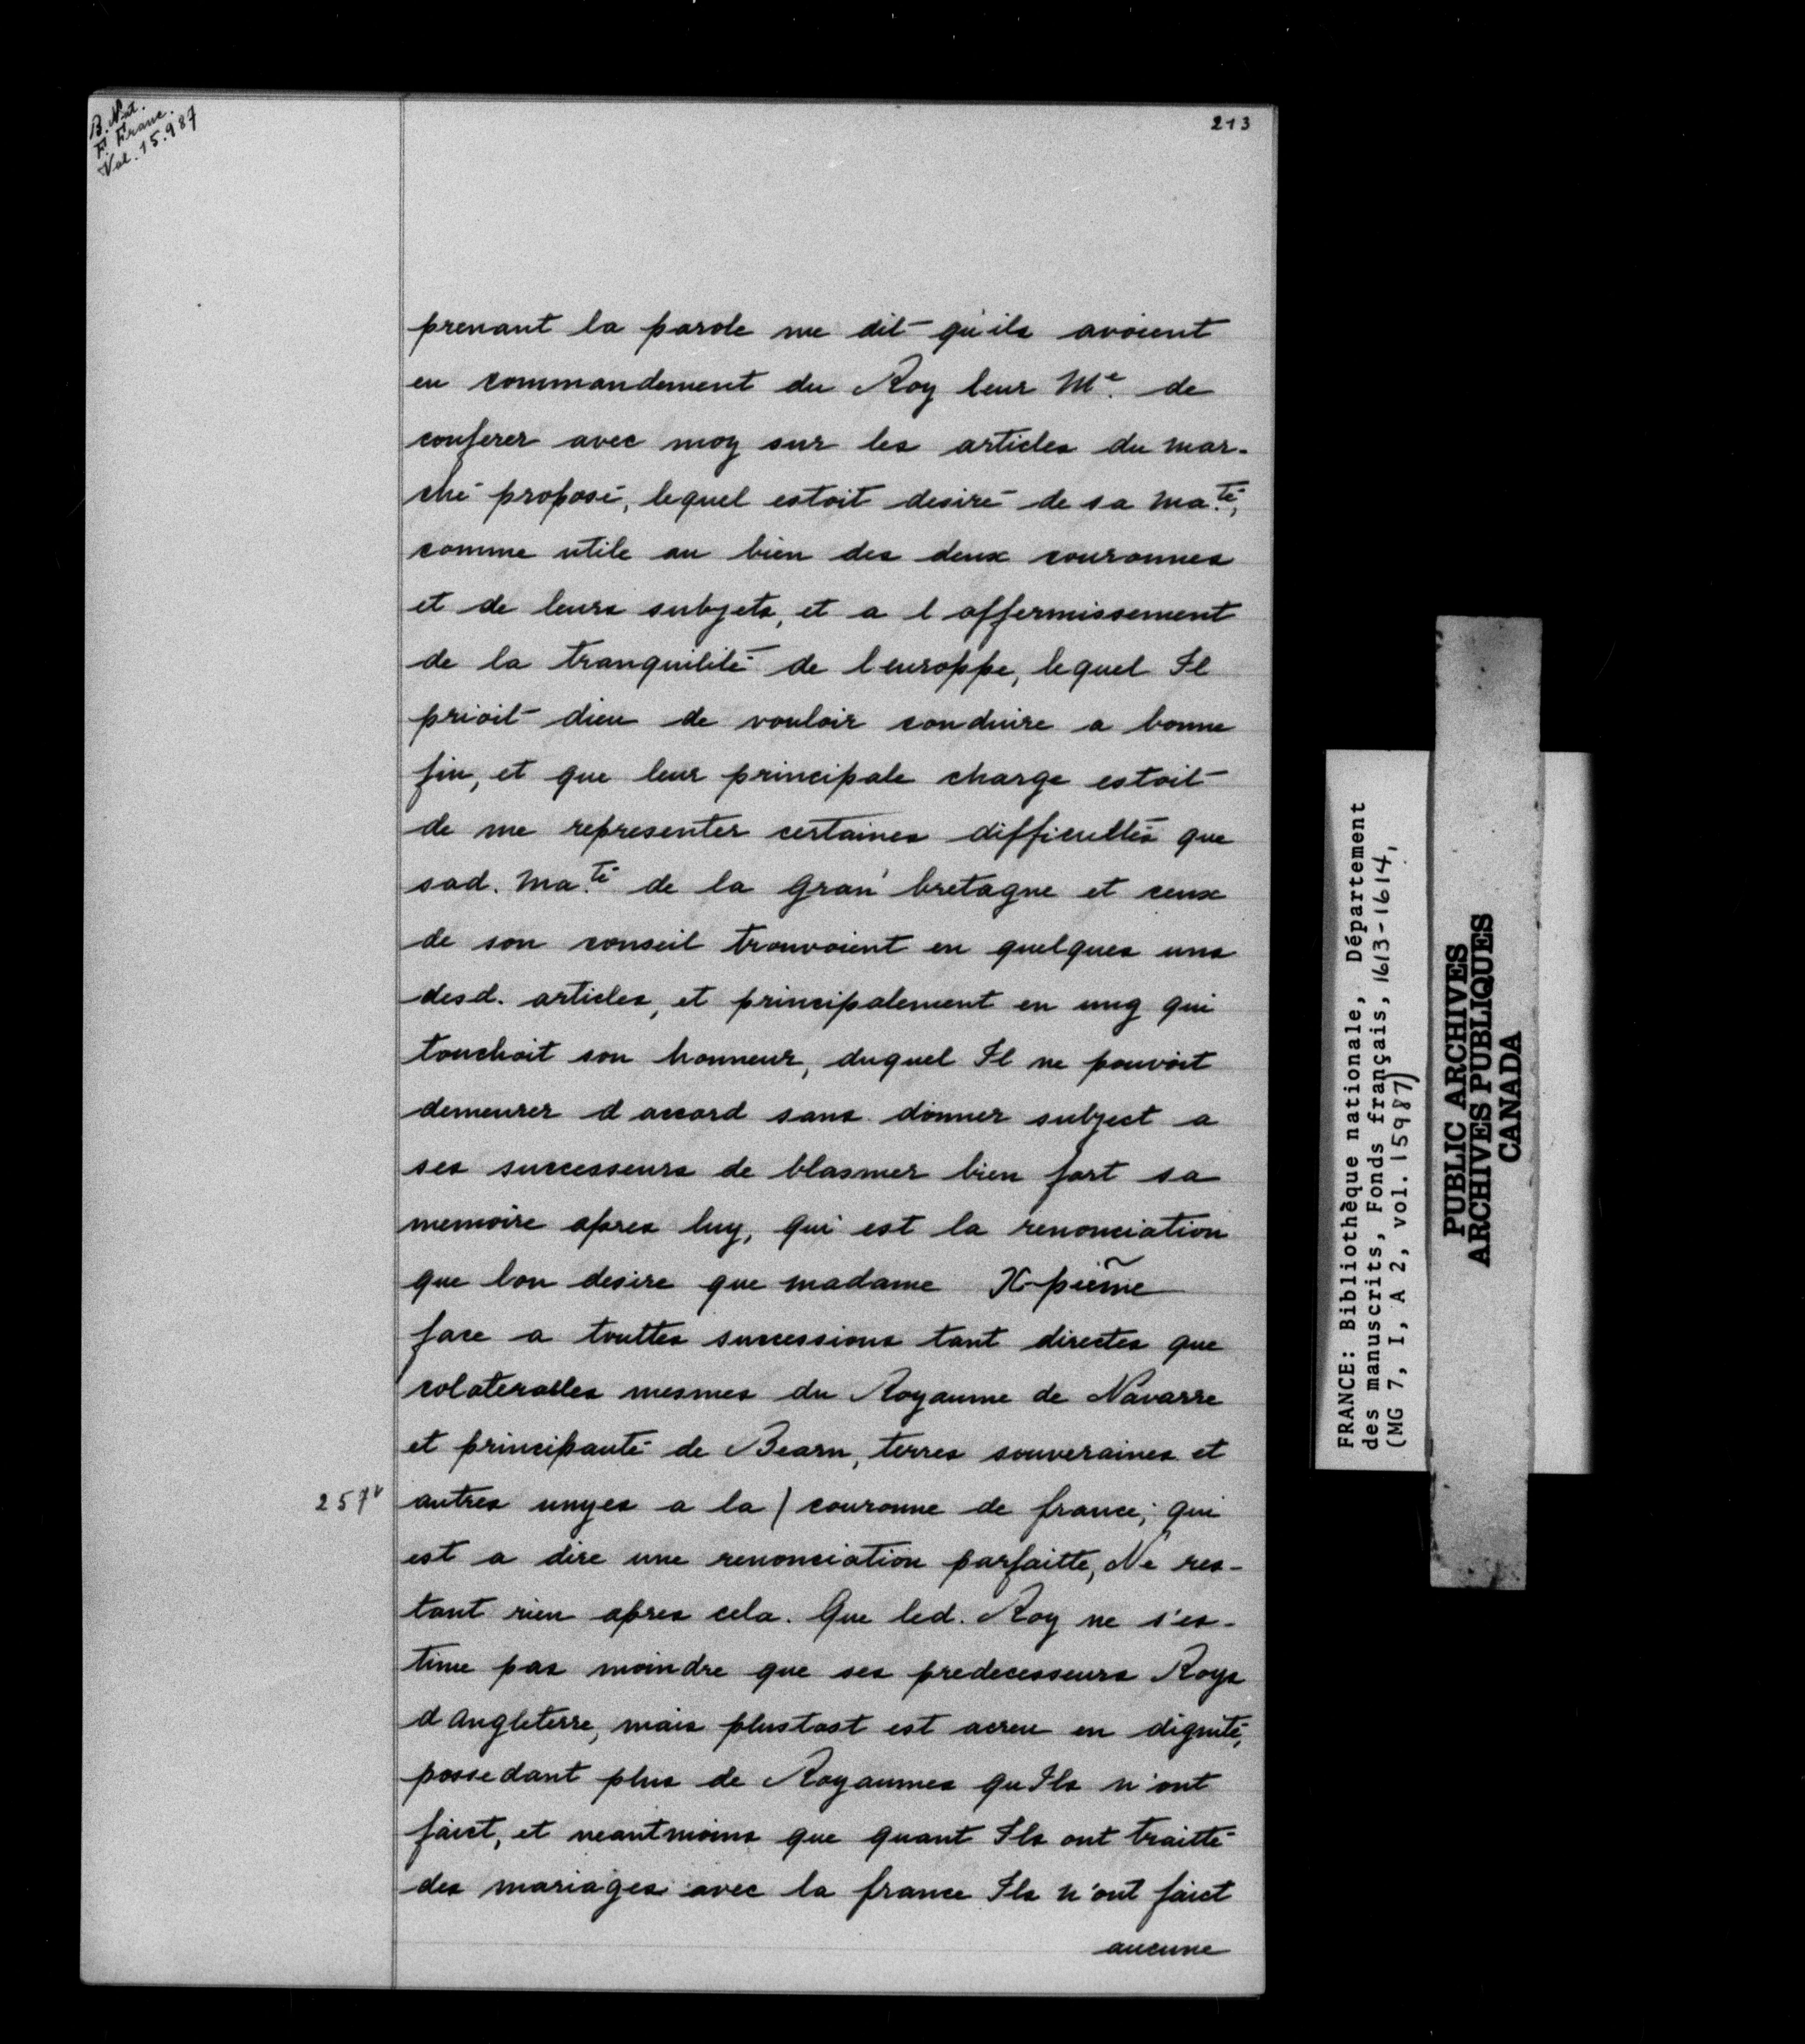 B. Nat.
F. Franc.
Vol. 15.987
213
prenant la parole me dit qu'ils avoient
eu commandement du Roy leur Me. de
conferer avec moy sur les articles du mar-
ché proposé, lequel estoit desiré de sa Ma.té,
comme utile au bien des deux couronnes
et de leurs subjets, et a l affermissement
de la tranquilité de leuroppe, lequel Il
prioit dieu de vouloir conduire a bonne
fin, et que leur principale charge estoit
de me representer certaines difficultés que
sad. Ma.té de la gran' bretagne et ceux
de son conseil trouvoient en quelques uns
desd. articles, et principalement en ung qui
touchoit son honneur, duquel Il ne pouvoit
demeurer d accord sans donner subject a
ses successeurs de blasmer bien fort sa
memoire apres luy, qui est la renonciation
que lon desire que madame X-pieñe
face a touttes successions tant directes que
colateralles mesmes du Royaume de Navarre
et principauté de Bearn, terres souveraines et
257v autres unyes a la / couronne de france; qui
est a dire une renonciation parfaitte, Ne res-
tant rien apres cela. Que led. Roy ne s'es-
time pas moindre que ses predecesseurs Roys
d Angleterre, mais plustost est acreu en dignité,
possedant plus de Royaumes qu Ils n'ont
faict, et neantmoins que quant Ils ont traitté
des mariages avec la france Ils n'ont faict
aucune
FRANCE: Bibliothèque nationale, Département
des manuscrits, Fonds français, 1613-1614,
(MG 7, I, A 2, vol. 15987)
PUBLIC ARCHIVES
ARCHIVES PUBLIQUES
CANADA